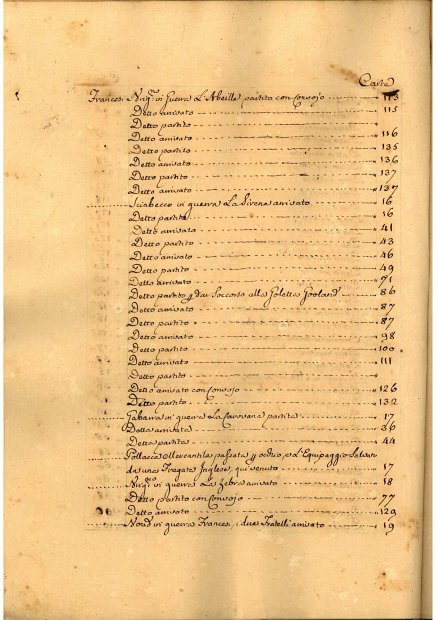 Carte
Francesi Brig.no in guerra L'Abeille partito con Convojo 113
Detto arrivato 115
Detto partito
Detto arrivato 116
Detto partito 135
Detto arrivato 136
Detto partito 137
Detto arrivato 137
Sciabecco in guerra La Sirene arrivato 16
Detto partito 16
Detto arrivato 41
Detto partito 43
Detto arrivato 46
Detto partito 49
Detto arrivato 71
Detto partito p dar Soccorso alla Goletta 86
Detto arrivato 87
Detto partito 87
Detto arrivato 98
Detto partito 100
Detto arrivato 111
Detto partito
Detto arrivato con Convojo 126
Detto partito 132
Gabarra in guerra La partita 17
Detta arrivata 36
Detta partita 44
Pollacca Mercantile passata p Equipaggio
da una Fregata Inglese, qui venuto 17
Brig.no in guerra La Zebra arrivato 18
Detto partito con Convojo 77
Detto arrivato 129
in guerra Frances. i due Fratelli arrivato 19